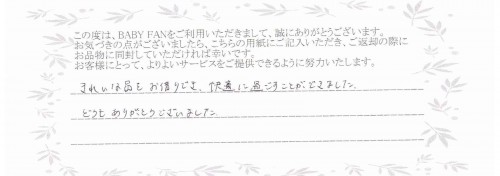 この度は、BABY FANをご利用いただきまして、誠にありがとうございます。
お気づきの点がございましたら、こちらの用紙にご記入いただき、ご返却の際に
お品物に同封していただければ幸いです。
お客様にとって、よりよいサービスをご提供できるように努力いたします。
きれいな品をお借りでき、快適に過ごすことができました。
どうもありがとうございました。